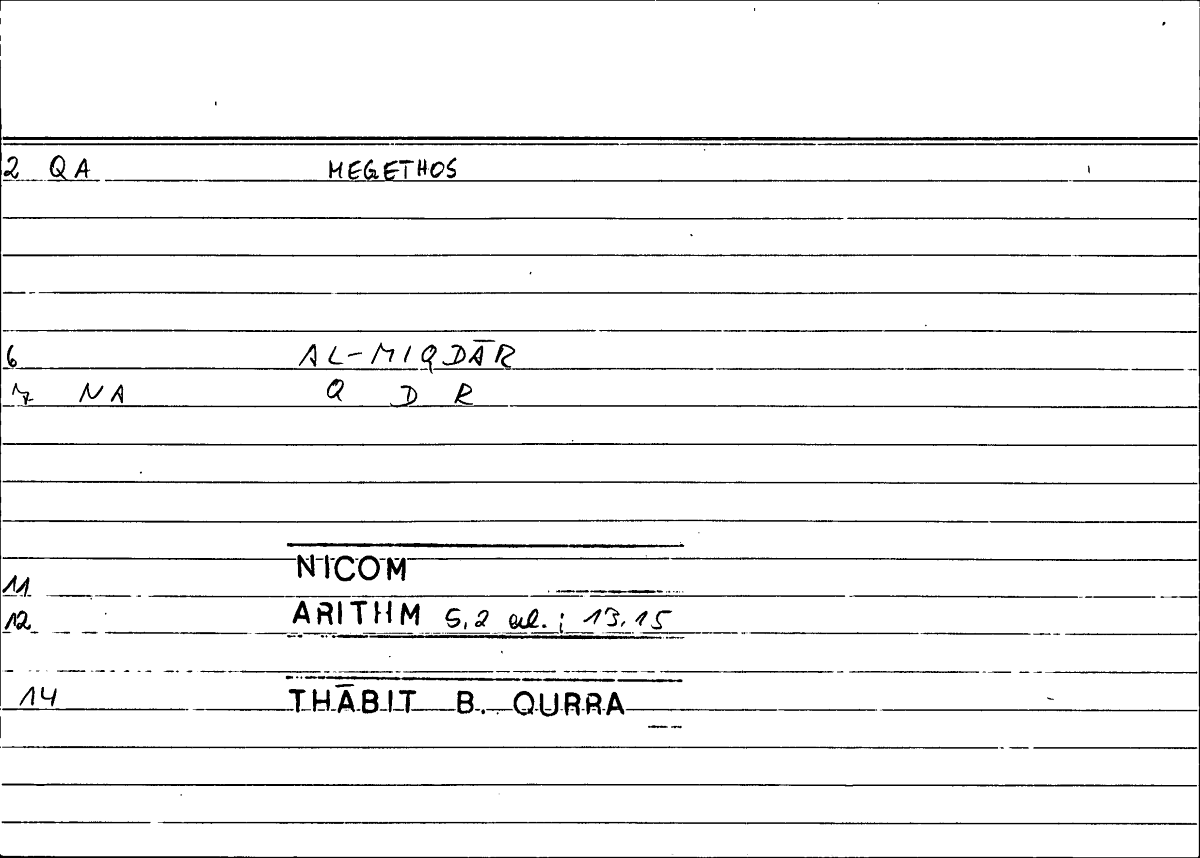 2 QA MEGETHOS
6 AL-MIQDĀR
7 NA Q D R
NICOM
11
12 ARITHM 5,2 al.; 13,15
14 THĀBIT B. QURRA